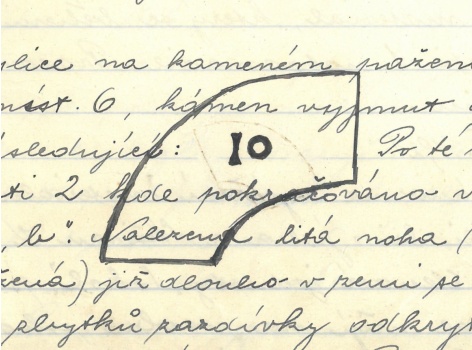 ulice na kameném pažení
míst. 6, kámen vyjmut
následující: 10 Po té
ti 2 kde pokračováno v
b". Nalezena litá noha (
ená) již dlouho v zemi se
zbytků zazdívky odkryt